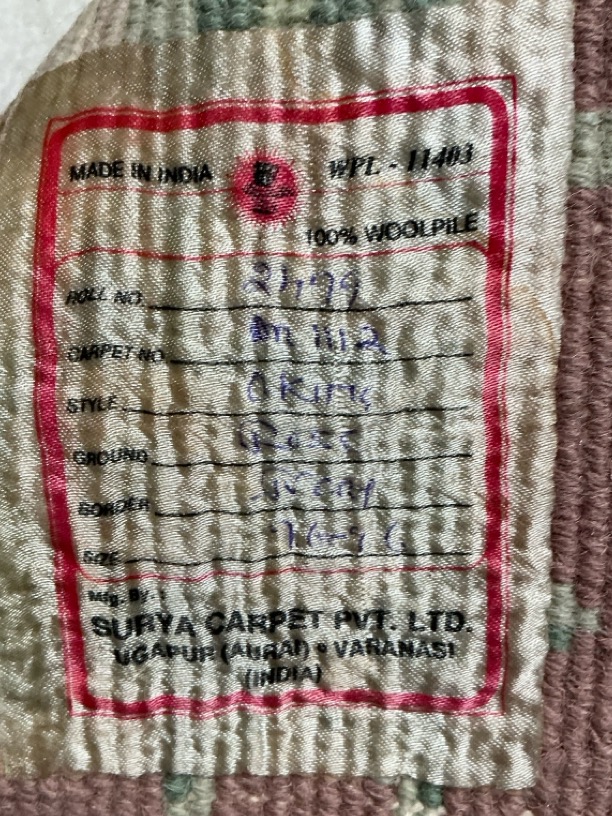 MADE IN INDIA WPL - 11403
100% WOOLPILE
ROLL NO.
CARPET NO. 1112
STYLE
GROUND Rose
BORDER Ivory
SIZE
Mfg. By :
SURYA CARPET PVT. LTD.
UGAPUR (AURAI) • VARANASI
(INDIA)